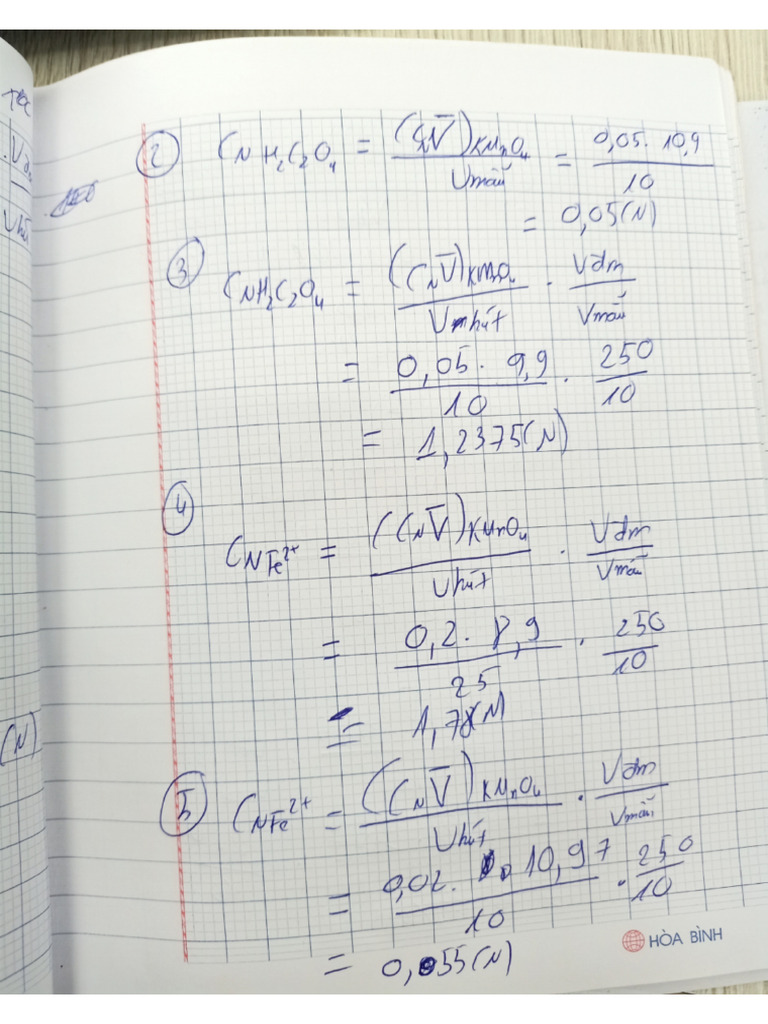 (2) C_N H₂C₂O₄ = (C_N V̄)KMnO₄ / Vmẫu = 0,05. 10,9 / 10
= 0,05(N)
(3) C_N H₂C₂O₄ = (C_N V̄)KMnO₄ / Vhút . Vđm / Vmẫu
= 0,05. 9,9 / 10 . 250 / 10
= 1,2375(N)
(4) C_N Fe²⁺ = (C_N V̄)KMnO₄ / Vhút . Vđm / Vmẫu
= 0,2. 8,9 / 25 . 250 / 10
= 1,78(N)
(5) C_N Fe²⁺ = (C_N V̄)KMnO₄ / Vhút . Vđm / Vmẫu
= 0,02. 10,97 / 10 . 250 / 10
= 0,55(N)
(N)
HÒA BÌNH